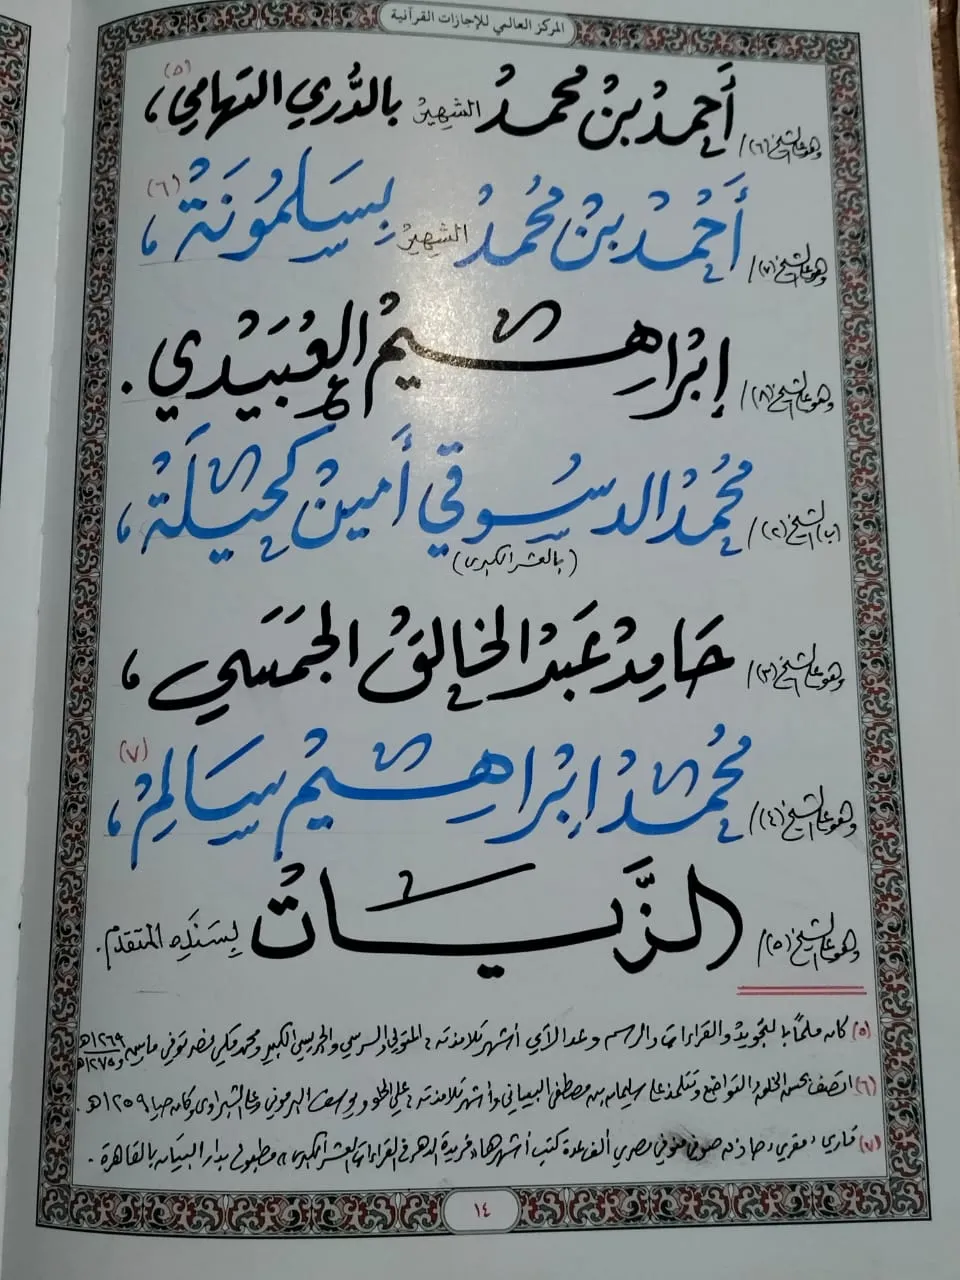 المركز العالمي للإجازات القرآنية
وهو عالشيخ (٦) / أَحمدْ بنْ محمدْ الشهيرْ بالدُّري التهامي (٥) ،
وهو عالشيخ (٧) / أَحْمدْ بنْ مُحمدْ الشهيرْ بِسَلمُونَةْ (٦) ،
وهو عالشيخ (٨) / إبْراهيمْ العُبَيْدْي .
(ب) الشيخ (٢) / مُحمدْ الدسُوقي أَمينْ كحيلَةْ ،
(بالعشر الكبرى)
وهو عالشيخ (٣) / حَامِدْ عَبَدْ الخالقْ الجَمَسَي ،
وهو عالشيخ (٤) / مُحمدْ إبْراهيمْ سَالِمْ (٧) ،
وهو عالشيخ (٥) / الزَّيَاتْ بِسَنَدِه المتقدم .
(٥) كان ملمًا بالتجويد والقراءات والرسم وعد الآي أشهر تلامذته : المتولي والسرسي والجريسي الكبير ومحمد مكي نصر توفي مابين ١٢٦٩هـ و ١٢٧٥هـ
(٦) اتصف بحسن الخلق والتواضع وتتلمذ عالسليمان بن مصطفى البيباني وأشهر تلامذته : علي الحلو ويوسف البرموني وعالشبراوي وكان حيا ١٢٥٩هـ .
(٧) قارئ مقرئ حاذق صوفي منوفي مصري ألف عدة كتب أشهرها "فريدة الدهر في القراءات العشر الكبرى" مطبوع بدار البيان بالقاهرة .
١٤